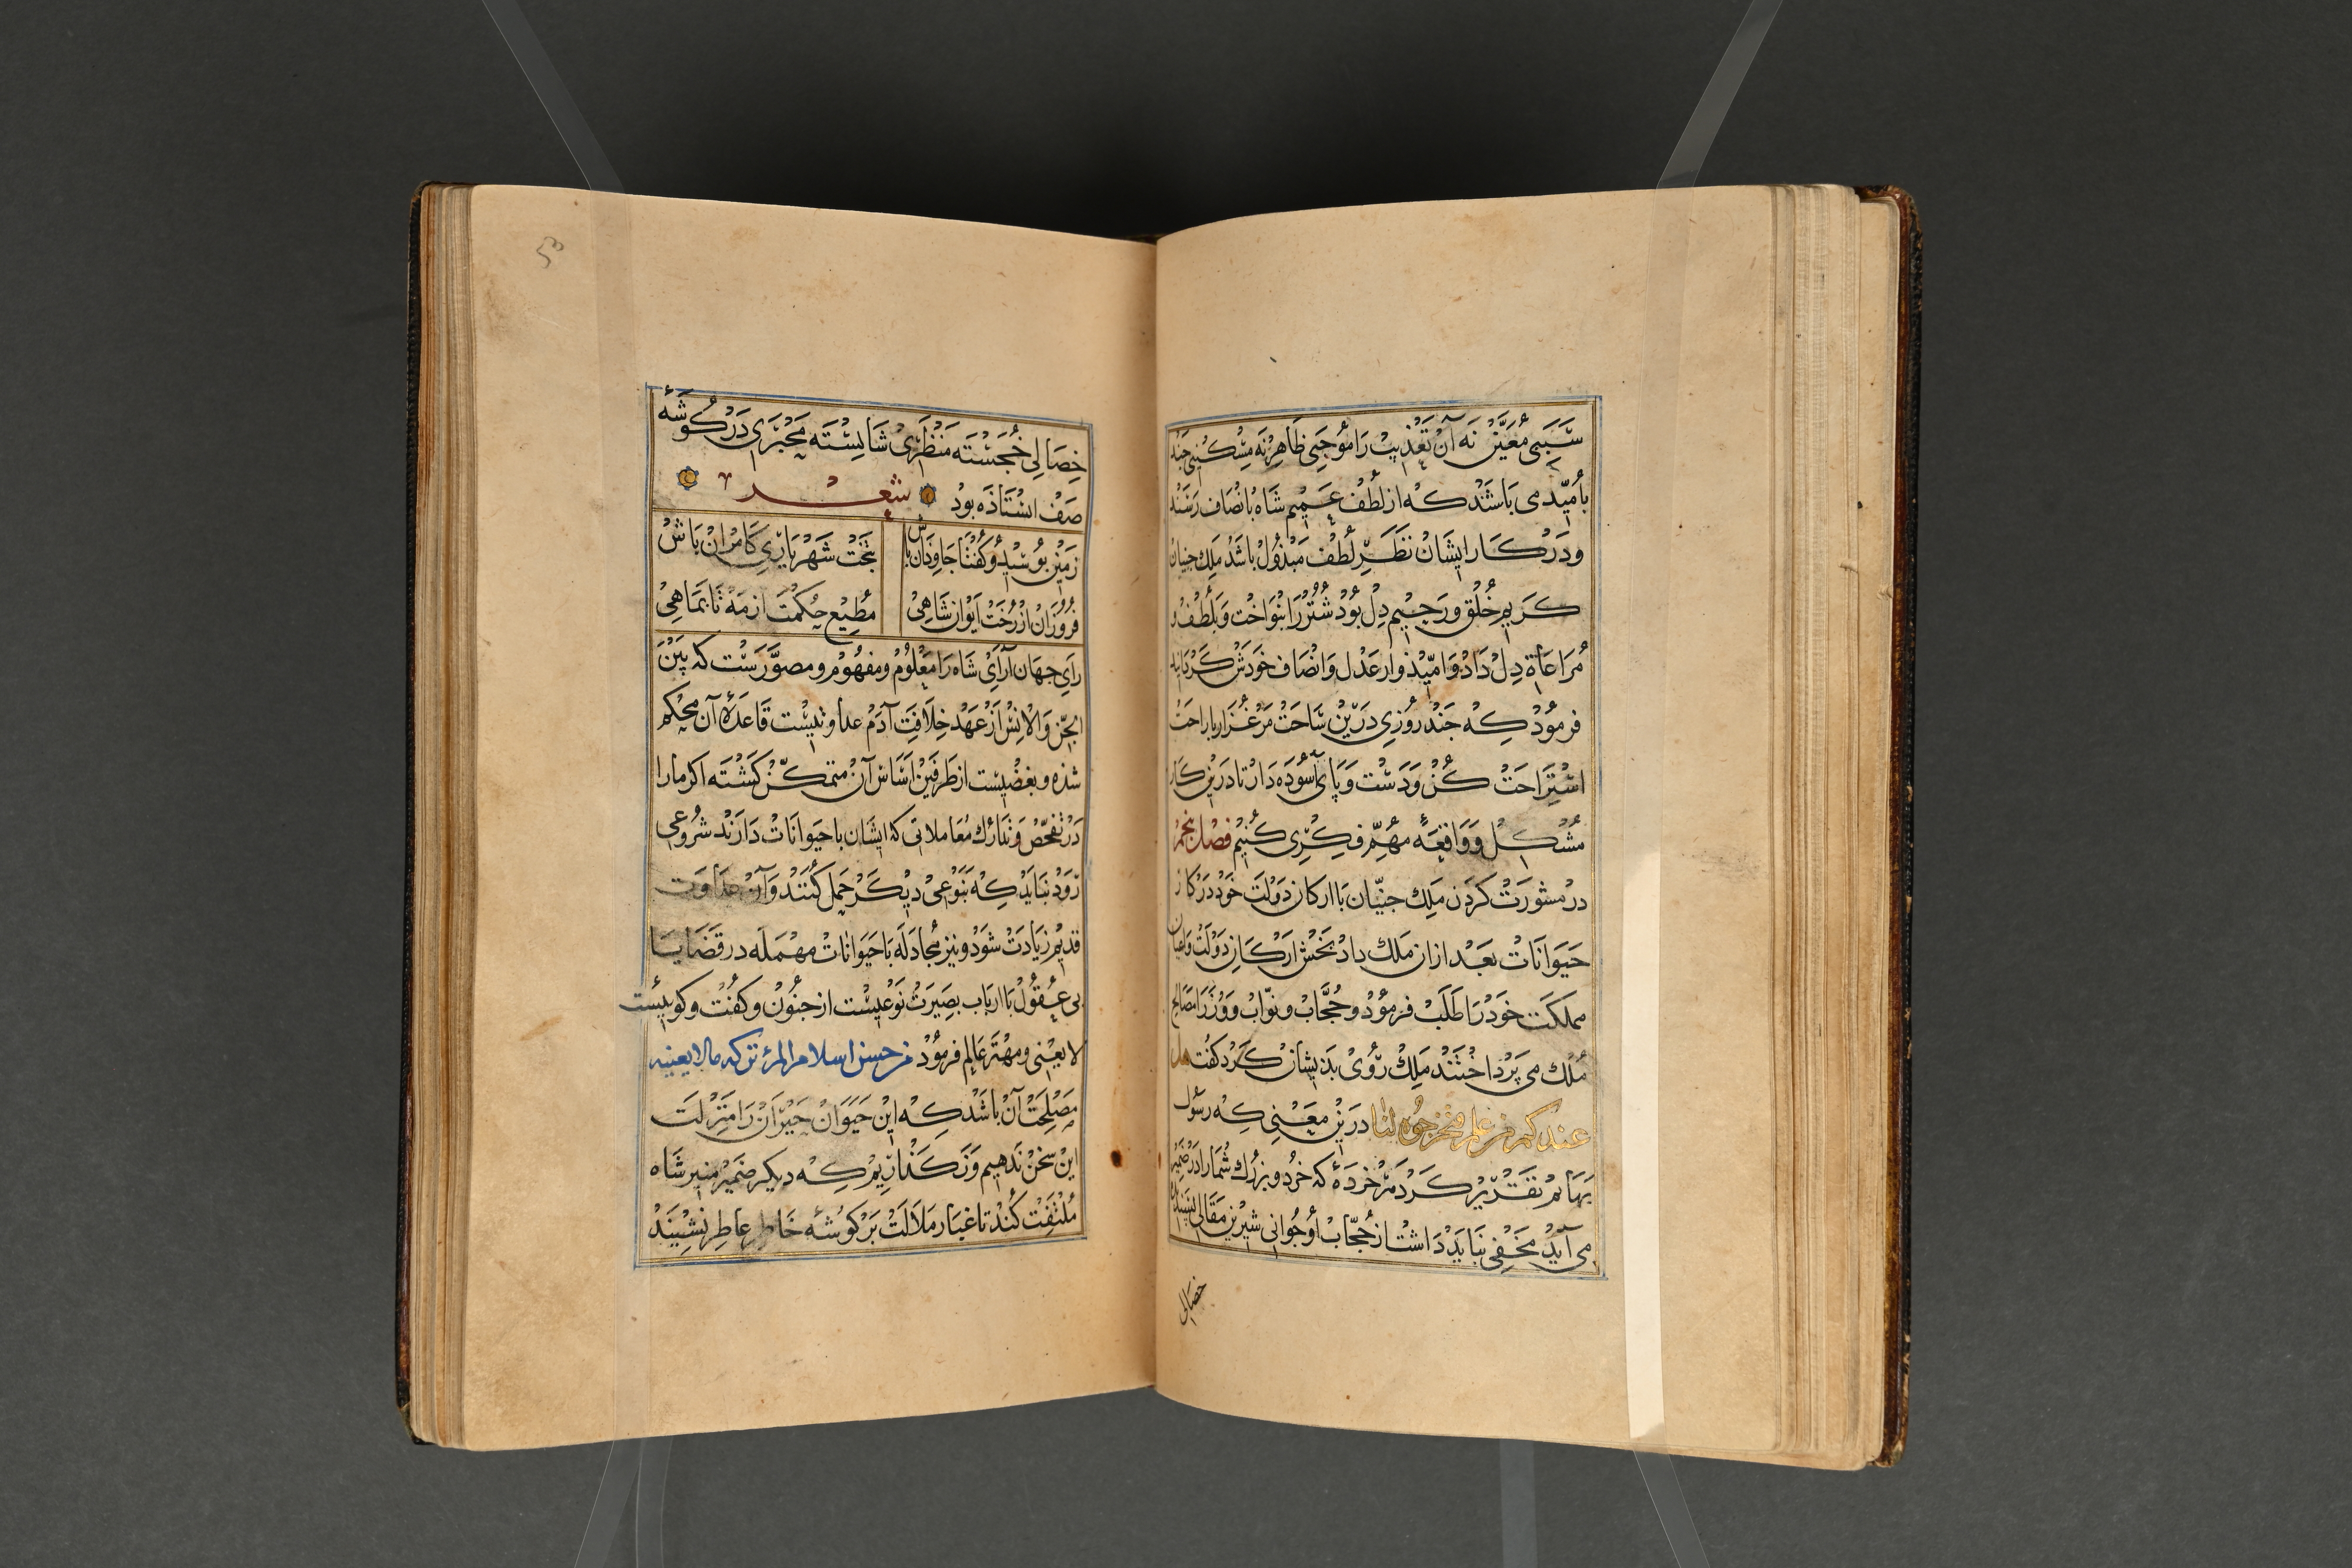 سببی معین نه آن تعذیب را موجبی ظاهر نه مسکینی چند
بامید می باشند که از لطف عمیم شاه بانصاف رسند
و در کار ایشان نظر لطف مبذول باشد ملک جنیان
کریم خلق و رحیم دل بود شتر را بنواخت و بلطف و
مراعاة دل داد و امیذوار عدل و انصاف خودش کردانید
فرمود که جند روزی درین ساحت مرغزار با راحت
استراحت کن و دست و پای آسوده دار تا درین کار
مشکل و واقعهٔ مهم فکری کنیم فصل پنجم
در مشورت کردن ملک جنیان با ارکان دولت خود در کار
حیوانات بعد ازان ملک داد بخش ارکان دولت و اعیان
مملکت خود را طلب فرمود و حجاب و نواب و وزرا مصالح
ملک می پرداختند ملک روی بدیشان کرد کفت هل
عندکم من علم فتخرجوه لنا درین معنی که رسول
بهایم تقدیر کرد مر خردهٔ که خرد و بزرك شما را در ضمیر
می آید مخفی نباید داشت از حجاب او جوانی شیرین مقالی بسندیده
خصالی
53
خصالی خجسته منظری شایسته مخبری در کوشهٔ
صف استاذه بود شعر
زمین بوسید و کفتا جاوذان باش بتخت شهریاری کامران باش
فروزان از رخت ایوان شاهی مطیع حکمت از مه تا بماهی
رای جهان آرای شاه را معلوم و مفهوم و مصورست که بین
الجن والانس از عهد خلافت آدم عداوتیست قاعدهٔ آن محکم
شذه و بغضیست از طرفین اساس آن متمکن کشته اکر ما را
در تفحص و تدارك معاملاتی که ایشان با حیوانات دارند شروعی
رود نباید که بنوعی دیکر حمل کنند و آن عداوت
قدیم زیادت شود و نیز مجادله با حیوانات مهمله در قضایا
بی عقول با ارباب بصیرت نوعیست از جنون و کفت و کوییست
لا یعنی و مهتر عالم فرمود من حسن اسلام المرء ترکه ما لا یعنیه
مصلحت آن باشد که این حیوان حیران را منزلت
این سخن ندهیم و نکذاریم که دیکر ضمیر منیر شاه
ملتفت کند تا غبار ملالت بر کوشهٔ خاطر عاطر ننشیند